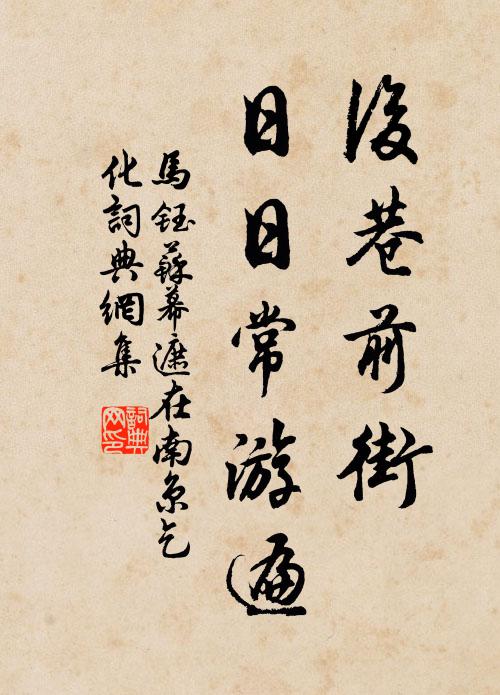 後巷前街
日日常游遍
馬鈺蘇幕遮在南京乞
化詞典網集
詞典网印